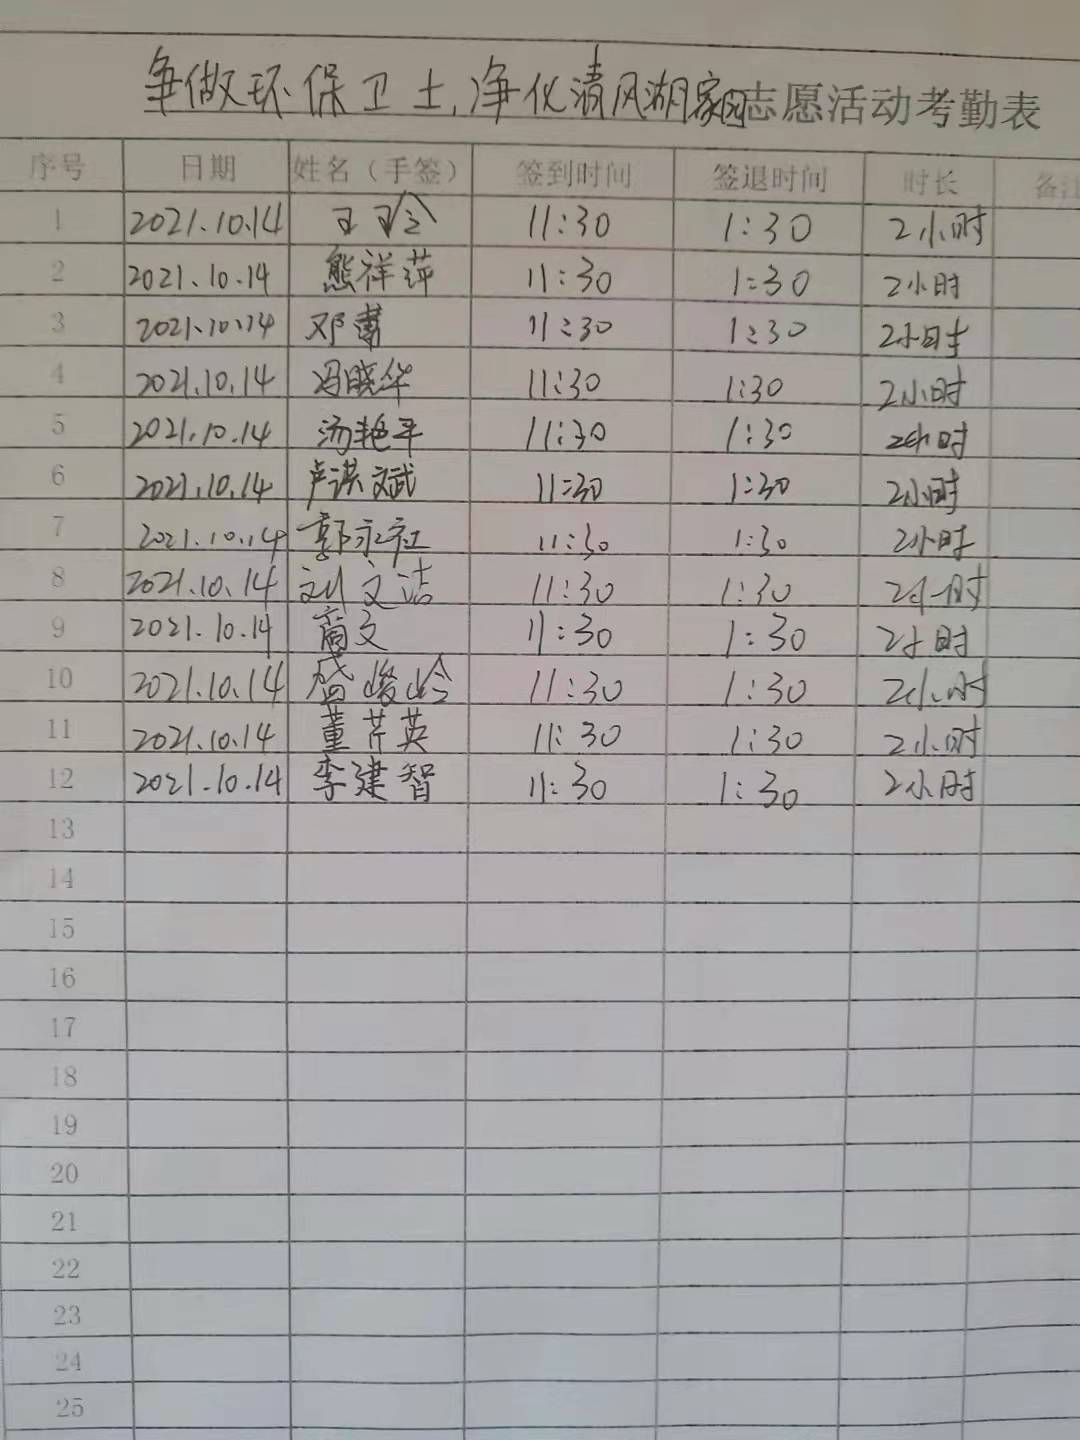 争做环保卫士,净化清风湖家园志愿活动考勤表
序号 日期 姓名（手签） 签到时间 签退时间 时长 备注
1 2021.10.14 11:30 1:30 2小时
2 2021.10.14 熊祥萍 11:30 1:30 2小时
3 2021.10.14 邓肃 11:30 1:30 2小时
4 2021.10.14 冯晓华 11:30 1:30 2小时
5 2021.10.14 汤艳平 11:30 1:30 2小时
6 2021.10.14 卢洪斌 11:30 1:30 2小时
7 2021.10.14 郭永红 11:30 1:30 2小时
8 2021.10.14 刘文洁 11:30 1:30 2小时
9 2021.10.14 商文 11:30 1:30 2小时
10 2021.10.14 盛峻岭 11:30 1:30 2小时
11 2021.10.14 董芹英 11:30 1:30 2小时
12 2021.10.14 李建智 11:30 1:30 2小时
13
14
15
16
17
18
19
20
21
22
23
24
25